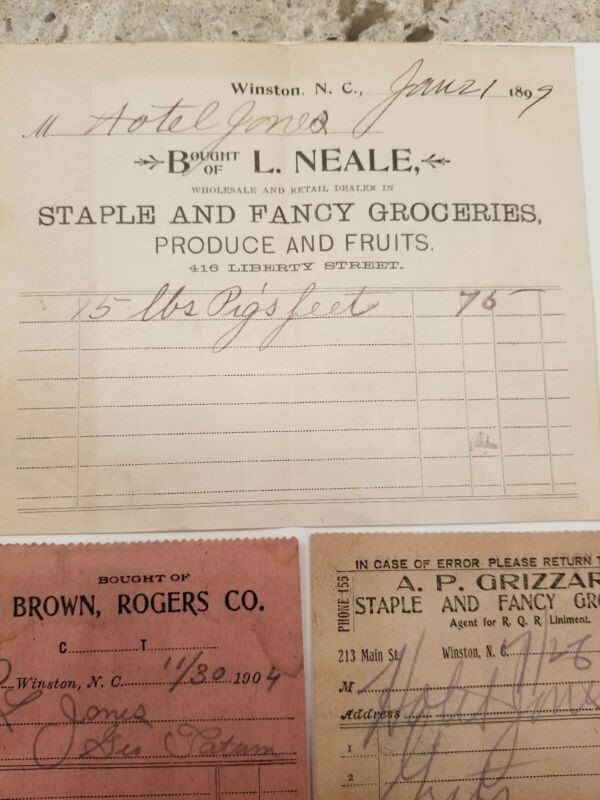 Winston, N. C., Jan 21 1899
M Hotel Jones
BOUGHT OF L. NEALE,
WHOLESALE AND RETAIL DEALER IN
STAPLE AND FANCY GROCERIES,
PRODUCE AND FRUITS.
416 LIBERTY STREET.
15 lbs Pig's feet 75
BOUGHT OF
BROWN, ROGERS CO.
C. T
Winston, N. C. 11/30 1904
Jones
Geo Tatum
IN CASE OF ERROR PLEASE RETURN T
PHONE 155
A. P. GRIZZAR
STAPLE AND FANCY GRO
Agent for R. Q. R. Liniment.
213 Main St. Winston, N. C. 7/26
M Hotel Jones
Address
1
2